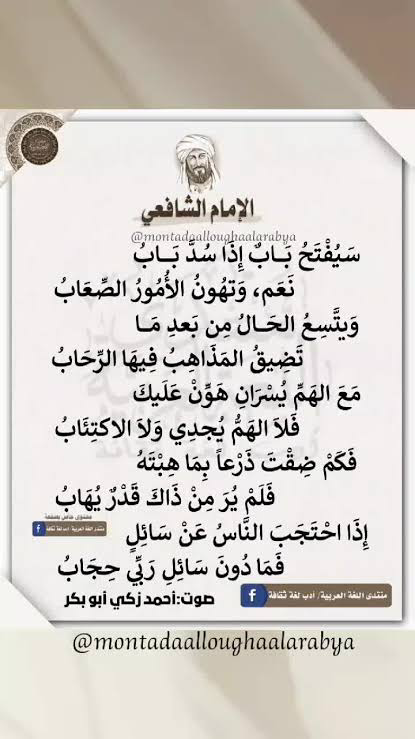 الإمام الشافعي
@montadaalloughaalarabya
سَيُفْتَحُ بَــابٌ إِذَا سُدَّ بَــابُ
نَعَم، وَتهُونُ الأُمُورُ الصِّعَابُ
وَيتَّسِعُ الحَــالُ مِن بَعدِ مَــا
تَضِيقُ المَذَاهِبُ فِيهَا الرِّحَابُ
مَعَ الهَمِّ يُسْرَانِ هَوِّنْ عَلَيكَ
فَلاَ الهَمُّ يُجدِي وَلاَ الاكتِئَابُ
فَكَمْ ضِقْتَ ذَرْعاً بِمَا هِبْتَهُ
فَلَمْ يُرَ مِنْ ذَاكَ قَدْرٌ يُهَابُ
إِذَا احْتَجَبَ النَّاسُ عَنْ سَائِلٍ
فَمَا دُونَ سَائِلِ رَبِّي حِجَابُ
منتدى اللغة العربية/ أدب لغة ثقافة
صوت:أحمد زكي أبو بكر
@montadaalloughaalarabya